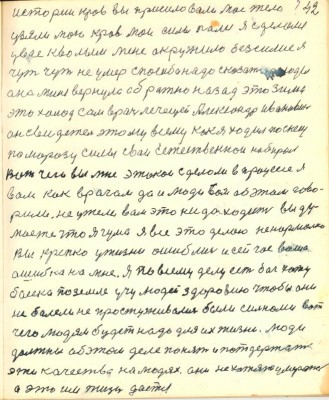 42
истории кров вы присилово вам мое тело
увяли мою кров мои силы пали я сделался
уведе кволым мине окружило безсилие я
чут чут не умер спосибо надо сказать
она мине вернуло обратно назад это зима
это холод сам врач лечещей Александр Иванович
он свидетел этому всему как я ходил по снегу
по морозу силы свои естественной набирал
Вот чего вы мне этокое сделоли в городе я
вам как врачам да и людям об этом гово-
рил. не ужели вам это не доходит вы ду-
маете что я чума я все это делаю ненормально
Вы крепко у жизни ошиблис и сейчас ваша
ошибка на мне. Я по всему делу ест бог хожу
босиком по земле учу людей здоровию чтобы они
не болели не простуживалис были силными вот
чего людям будет надо для их жизни. люди
должны об этом деле понят и потдержат
эти качества на людях. они не хотят умират
а это им жизн дается